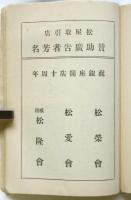 松屋取引店
賛助廣告者芳名
祝銀座開店十周年
松榮會
松愛會
松隆會